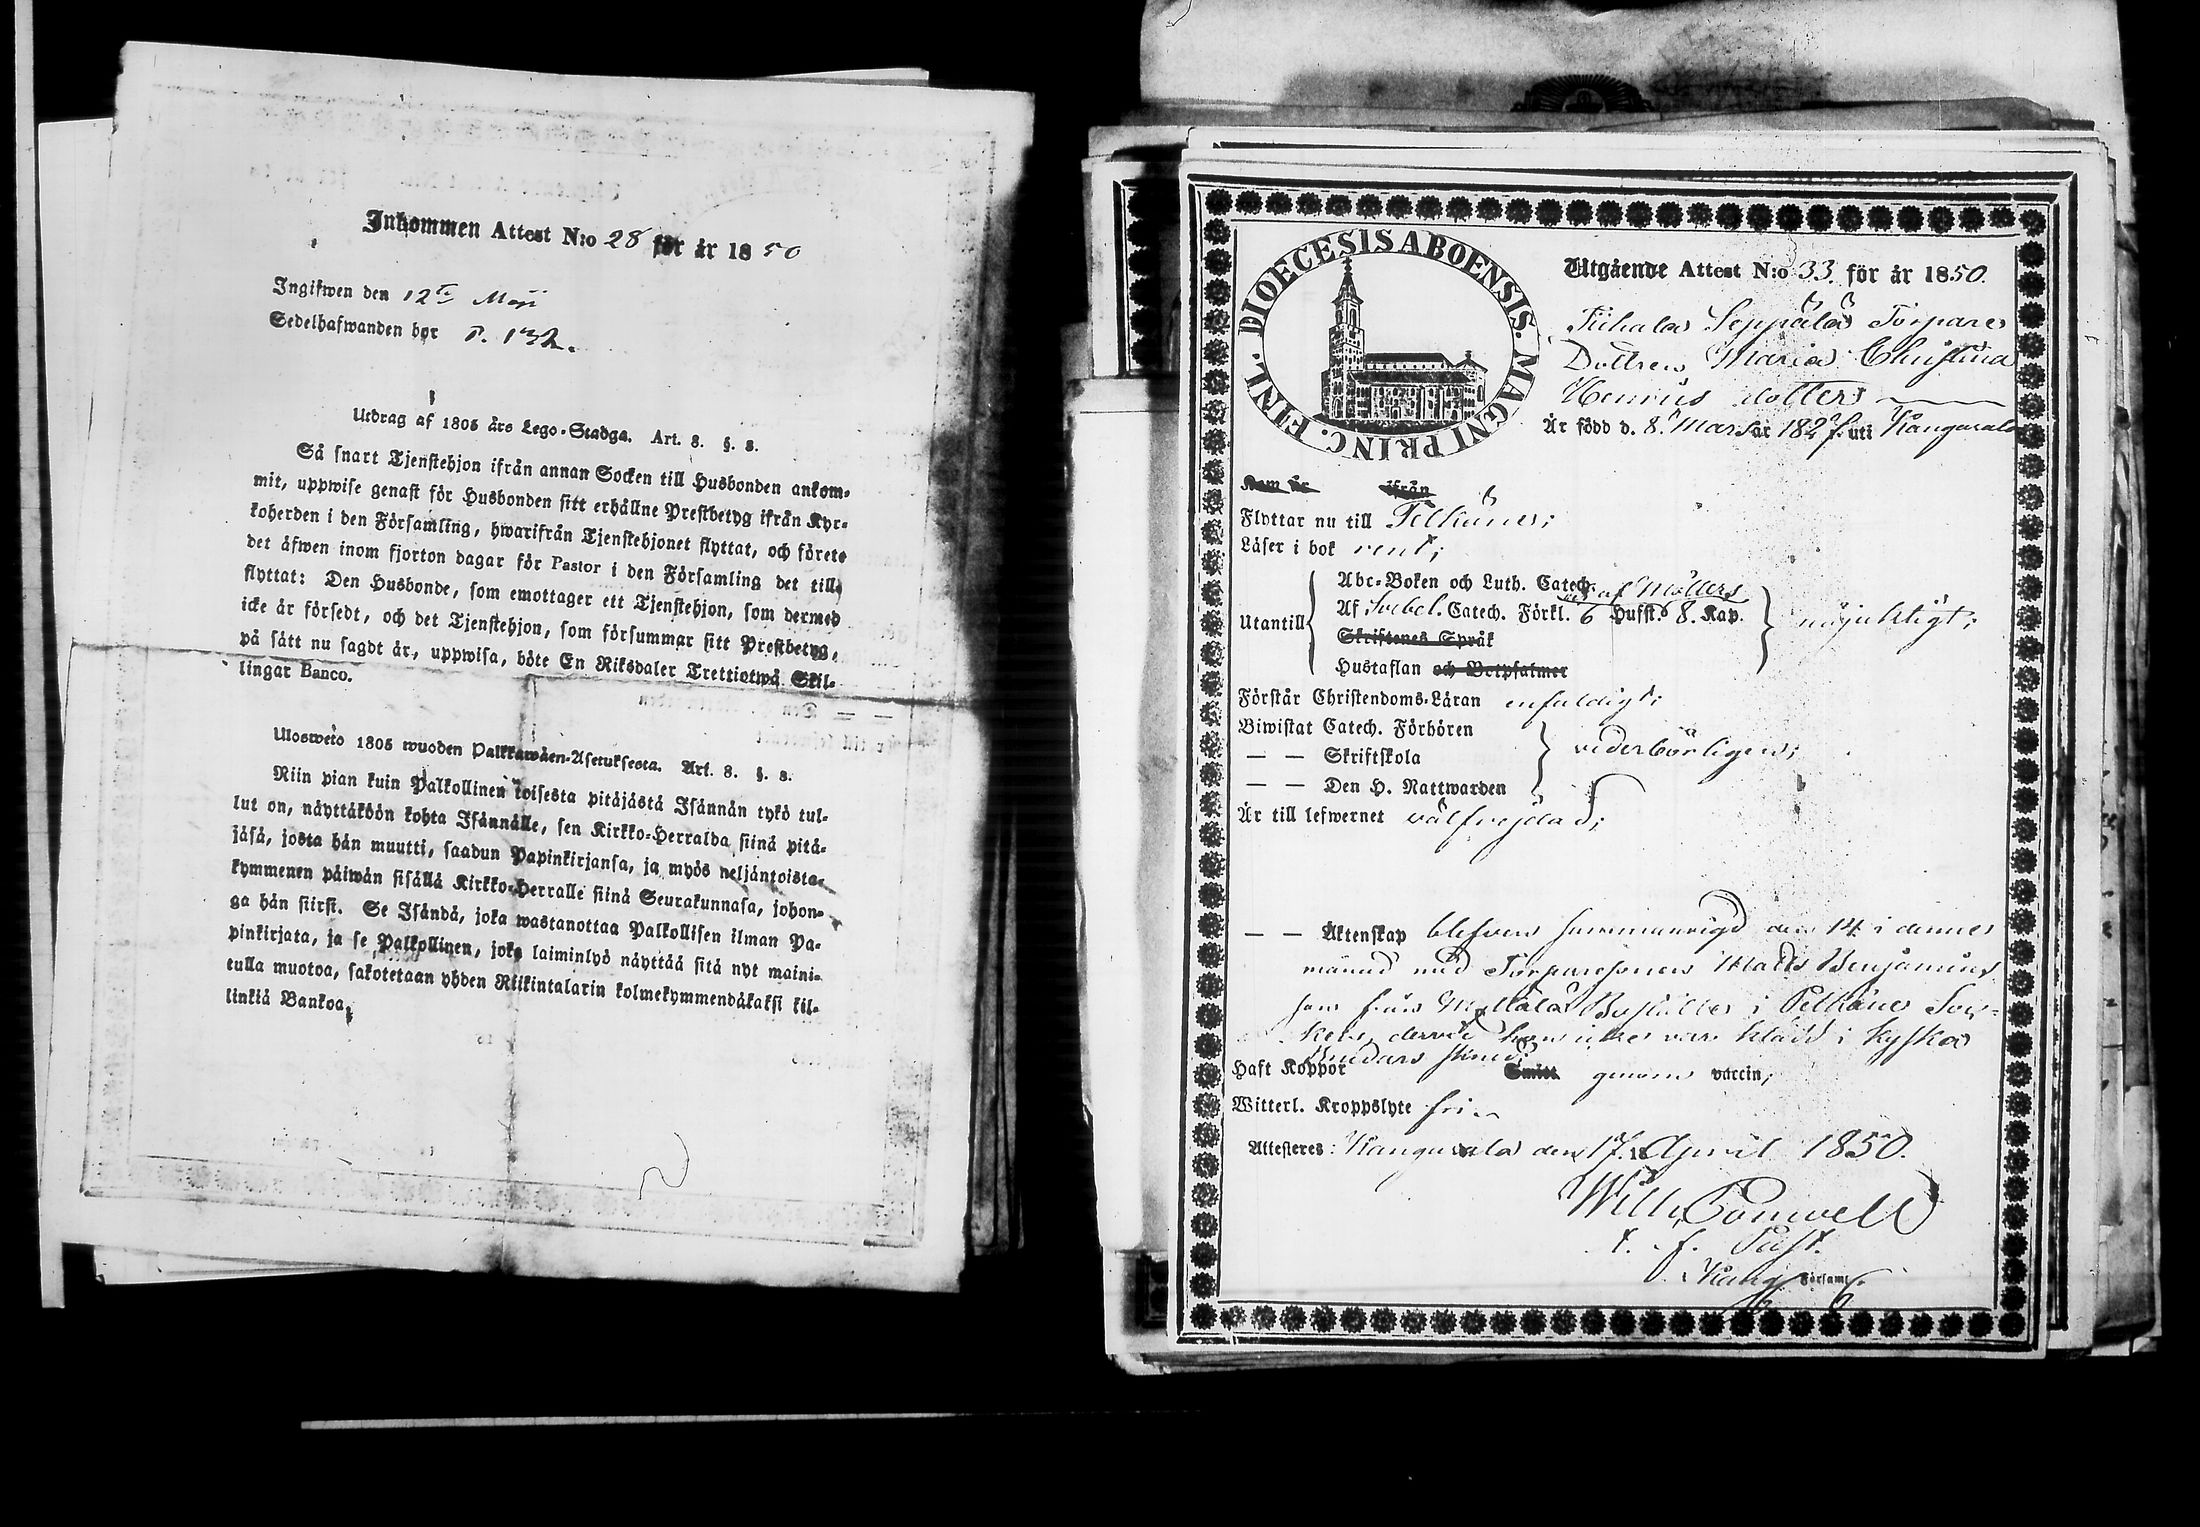 Inkommen Attest N:o 28 för år 1850
Ingifwen den 12te Maji
Sedelhafwanden bor P. 132.
Utdrag af 1805 års Lego-Stadga. Art. 8. §. 8.
Så snart Tjenstehjon ifrån annan Socken till Husbonden ankom-
mit, uppwise genast för Husbonden sitt erhållne Prestbetyg ifrån Kyr-
koherden i den Församling, hwarifrån Tjenstehjonet flyttat, och förete
det äfwen inom fjorton dagar för Pastor i den Församling det till-
flyttat: Den Husbonde, som emottager ett Tjenstehjon, som dermed
icke är försedt, och det Tjenstehjon, som försummar sitt Prestbetyg,
på sätt nu sagdt är, uppwisa, böte En Riksdaler Trettiotwå Skil-
lingar Banco.
Ulosweto 1805 wuoden Palkkawäen-Asetuksesta. Art. 8. §. 8.
Niin pian kuin Palkollinen toisesta pitäjästä Isännän tykö tul-
lut on, näyttäköön kohta Isännälle, sen Kirkko-Herralda siinä pitä-
jäsä, josta hän muutti, saadun Papinkirjansa, ja myös neljäntoista-
kymmenen päiwän sisällä Kirkko-Herralle siinä Seurakunnasa, johon-
ga hän siirsi. Se Isändä, joka wastanottaa Palkollisen ilman Pa-
pinkirjata, ja se Palkollinen, joka laiminlyö näyttää sitä nyt maini-
tulla muotoa, sakotetaan yhden Riikintalarin kolmekymmendäkaksi kil-
linkiä Bankoa.
DIOECESIS ABOENSIS. MAGNI PRINC. FINL.
Utgående Attest N:o 33. för år 1850.
Seppälä Torpare
Dottren Maria Christina
Henriks dotter
Är född d. 8. Mars år 182 uti Kangasala
Kom år ifrån
Flyttar nu till Pelkäne;
Läser i bok rent;
Utantill
Abc-Boken och Luth. Catech.
af Möllers
Af Svebel. Catech. Förkl. 6 Hufst. 8. Kap.
Skriftenes Språk
Hustaflan och Betpsalmer
nöjaktigt;
Förstår Christendoms-Läran enfaldigt;
Biwistat Catech. Förhören
— — Skriftskola
— — Den H. Nattwarden
vederbörligen;
Är till lefwernet välfrejdad;
— — Äktenskap blefven sammanvigd den 14 i denne
månad med Torparesonen Matts Benjamins
son från Mattala i Pelkäne Soc-
ken, dervid hon icke var klädd i kyska
Brudars skrud
Haft Koppor Smitt genom vaccin;
Witterl. Kroppslyte fri.
Attesteres: Kangasala den 17. April 1850.
Wilh.
t. f. Past.
Kang. Församl.